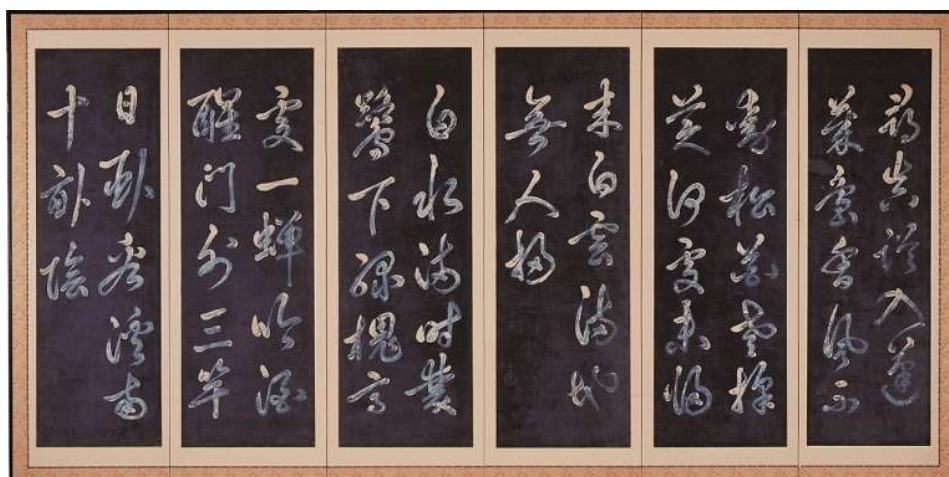 尋真誤入蓬
萊島香風不
動松花老採
芝何處未歸
来白雲滿地
無人掃
白水滿時雙
鷺下綠槐高
處一蟬吟酒
醒門外三竿
日臥看溪南
十畝陰